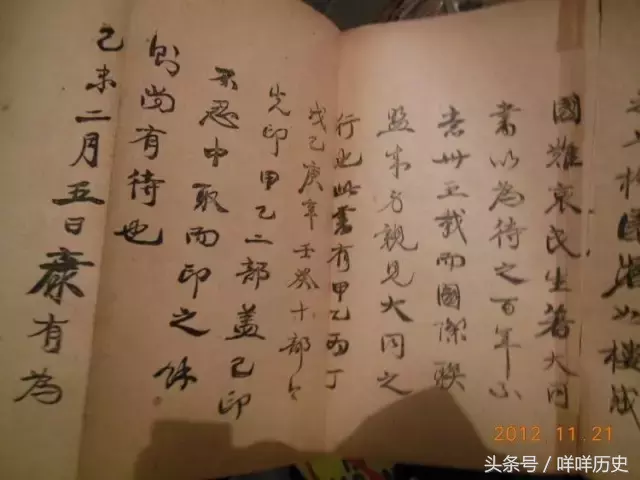 之七檜園澹如樓感
國難哀民生著大同
書以為待之百年不
意卅五載而國際聯
盟成身親見大同之
行也此書有甲乙丙丁
戊己庚辛壬癸十部今
先印甲乙二部盖已印
不忍中取而印之餘
則尚有待也
己未二月五日康有為
2012.11.21
头条号／咩咩历史